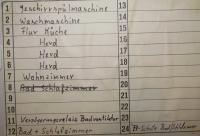 1 Geschirrspülmaschine
2 Waschmaschine
3 Flur Küche
4 Herd
5 Herd
6 Herd
7 Wohnzimmer
8 Bad Schlafzimmer
9
10
11 Verzögerungsrelais Badventilator
12 Bad + Schlafzimmer
13
14
15
16
17
18
19
20
21
22
23
24